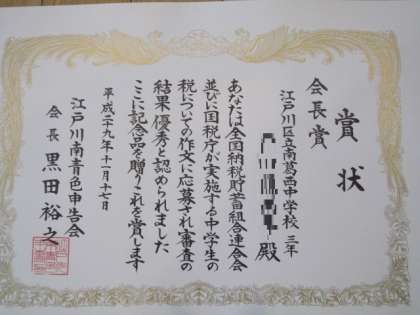 賞状
会長賞
江戸川区立南葛西中学校 三年
殿
あなたは全国納税貯蓄組合連合会
並びに国税庁が実施する中学生の
税についての作文に応募され審査の
結果優秀と認められました
ここに記念品を贈りこれを賞します
平成二十九年十一月十七日
江戸川南青色申告会
会長 黒田裕之